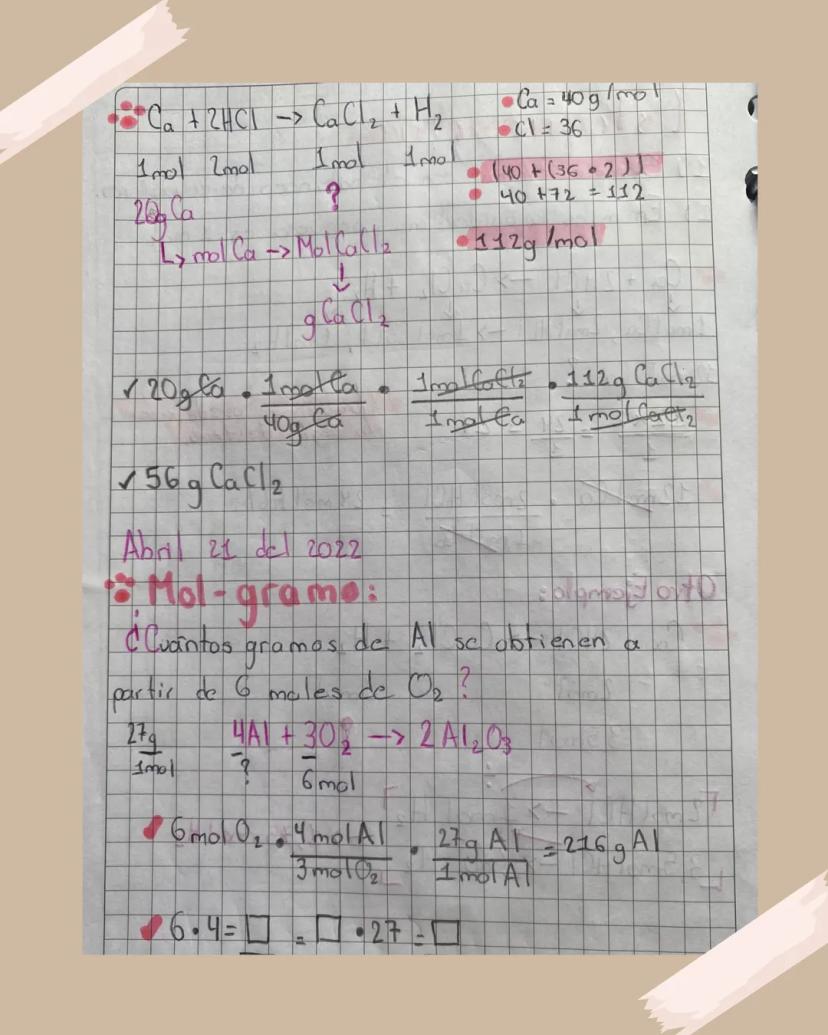 Ca + 2HCl → CaCl₂ + H₂
1mol 2mol 1mol 1mol
• Ca = 40g/mol
• Cl = 36
• (40 + (36 • 2))
• 40 + 72 = 112
• 112g/mol
20g Ca ?
↳ mol Ca → Mol CaCl₂
↓
g CaCl₂
✓ 20g Ca • 1mol Ca / 40g Ca • 1mol CaCl₂ / 1mol Ca • 112g CaCl₂ / 1mol CaCl₂
✓ 56g CaCl₂
Abril 21 del 2022
Mol-gramo:
¿Cuántos gramos de Al se obtienen a
partir de 6 moles de O₂?
27g / 1mol 4Al + 3O₂ → 2Al₂O₃
? 6mol
✓ 6mol O₂ • 4mol Al / 3mol O₂ • 27g Al / 1mol Al = 216g Al
✓ 6 • 4 = □ = □ • 27 = □